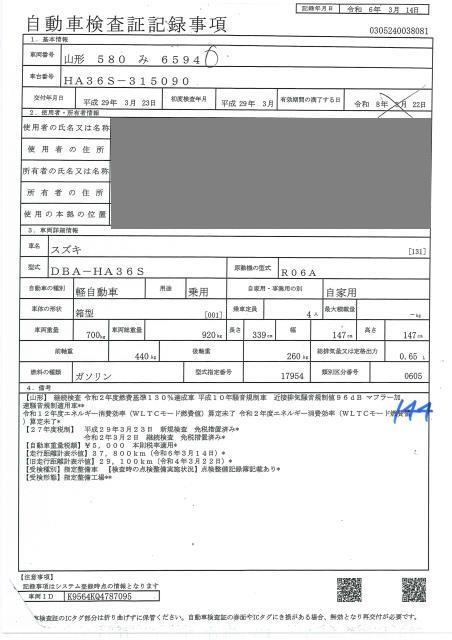 記録年月日 令和 6年 3月 14日
自動車検査証記録事項
0305240038081
1. 基本情報
車両番号 山形 580 み 6594
車台番号 HA36S-315090
交付年月日 平成 29年 3月 23日 初度検査年月 平成 29年 3月 有効期間の満了する日 令和 8年 3月 22日
2. 使用者・所有者情報
使用者の氏名又は名称
使用者の住所
所有者の氏名又は名称
所有者の住所
使用の本拠の位置
3. 車両詳細情報
車名 スズキ [131]
型式 DBA-HA36S 原動機の型式 R06A
自動車の種別 軽自動車 用途 乗用 自家用・事業用の別 自家用
車体の形状 箱型 [001] 乗車定員 4人 最大積載量 -kg
車両重量 700kg 車両総重量 920kg 長さ 339cm 幅 147cm 高さ 147cm
前軸重 440kg 後軸重 260kg 総排気量又は定格出力 0.65 L
燃料の種類 ガソリン 型式指定番号 17954 類別区分番号 0605
4. 備考
【山形】 継続検査 令和2年度燃費基準130%達成車 平成10年騒音規制車 近接排気騒音規制値96dB マフラー加
速騒音規制適用車**
令和12年度エネルギー消費効率(WLTCモード燃費値)算定未了 令和2年度エネルギー消費効率(WLTCモード燃費値
)算定未了*
144
【27年度税制】 平成29年3月23日 新規検査 免税措置済み*
令和2年3月2日 継続検査 免税措置済み*
【自動車重量税額】¥5,000 本則税率適用*
【走行距離計表示値】37,800km(令和6年3月14日)*
【旧走行距離計表示値】29,100km(令和4年3月22日)*
【受検種別】指定整備車 【検査時の点検整備実施状況】点検整備記録簿記載あり*
【受検形態】指定整備工場**
【注意事項】
記録事項はシステム登録時点の情報となります
車両ID K9564KQ4787095
車検査証のICタグ部分は折り曲げずに保管ください。自動車検査証の券面やICタグにき損がある場合、無効となり再交付が必要です。